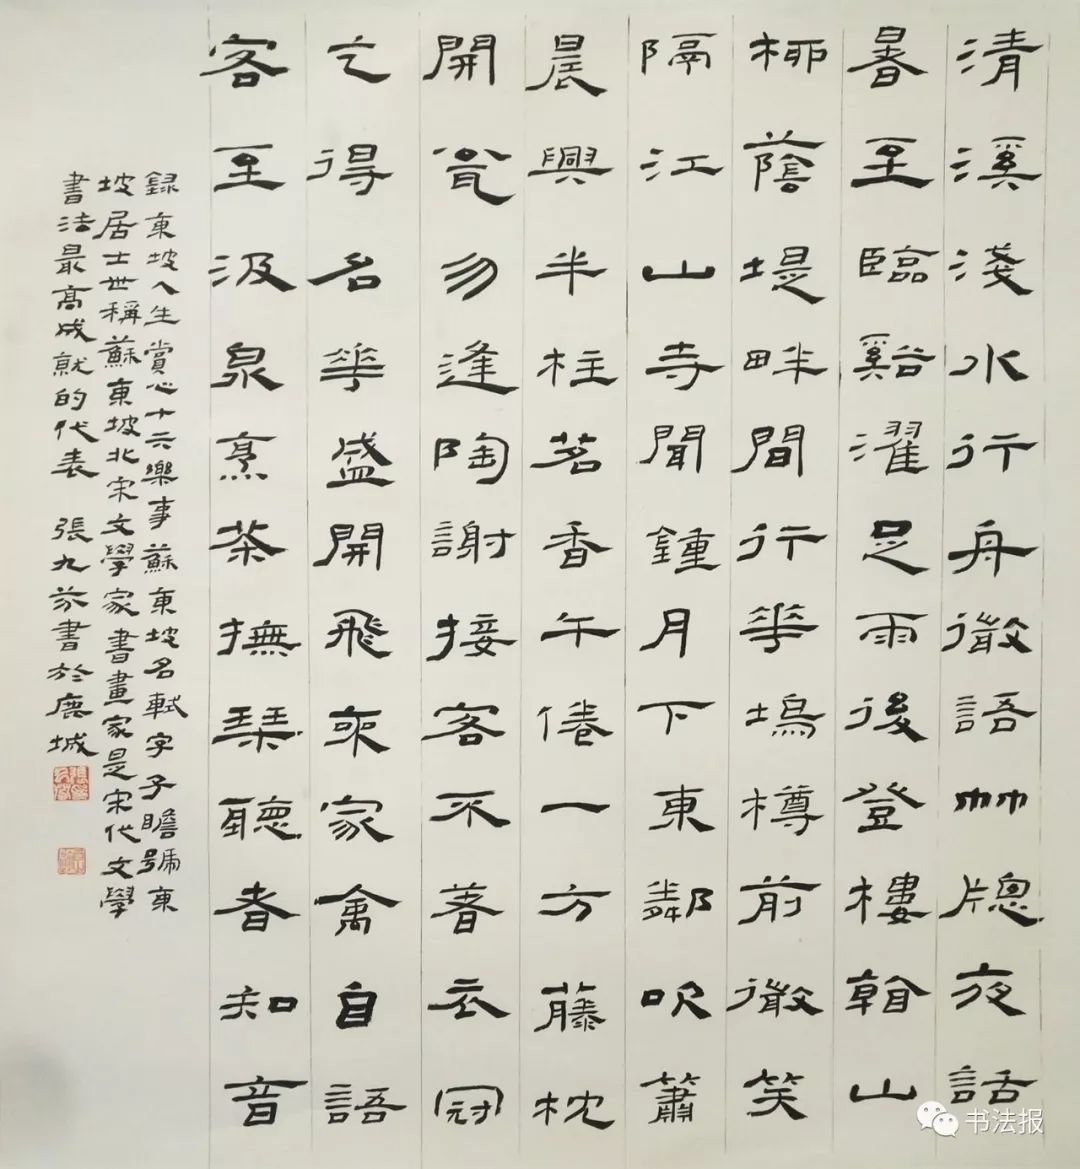 清溪淺水行舟微語竹牕夜話
暑至臨谿濯足雨後登樓看山
柳蔭堤畔間行花塢樽前微笑
隔江山寺聞鍾月下東鄰吹簫
晨興半柱茗香午倦一方藤枕
開瓮勿逢陶謝接客不著衣冠
乞得名花盛開飛來家禽自語
客至汲泉烹茶撫琴聽者知音
録東坡人生賞心十六樂事蘇東坡名軾字子瞻號東
坡居士世稱蘇東坡北宋文學家書畫家是宋代文學
書法最高成就的代表 張九芬書於鹿城
书法报